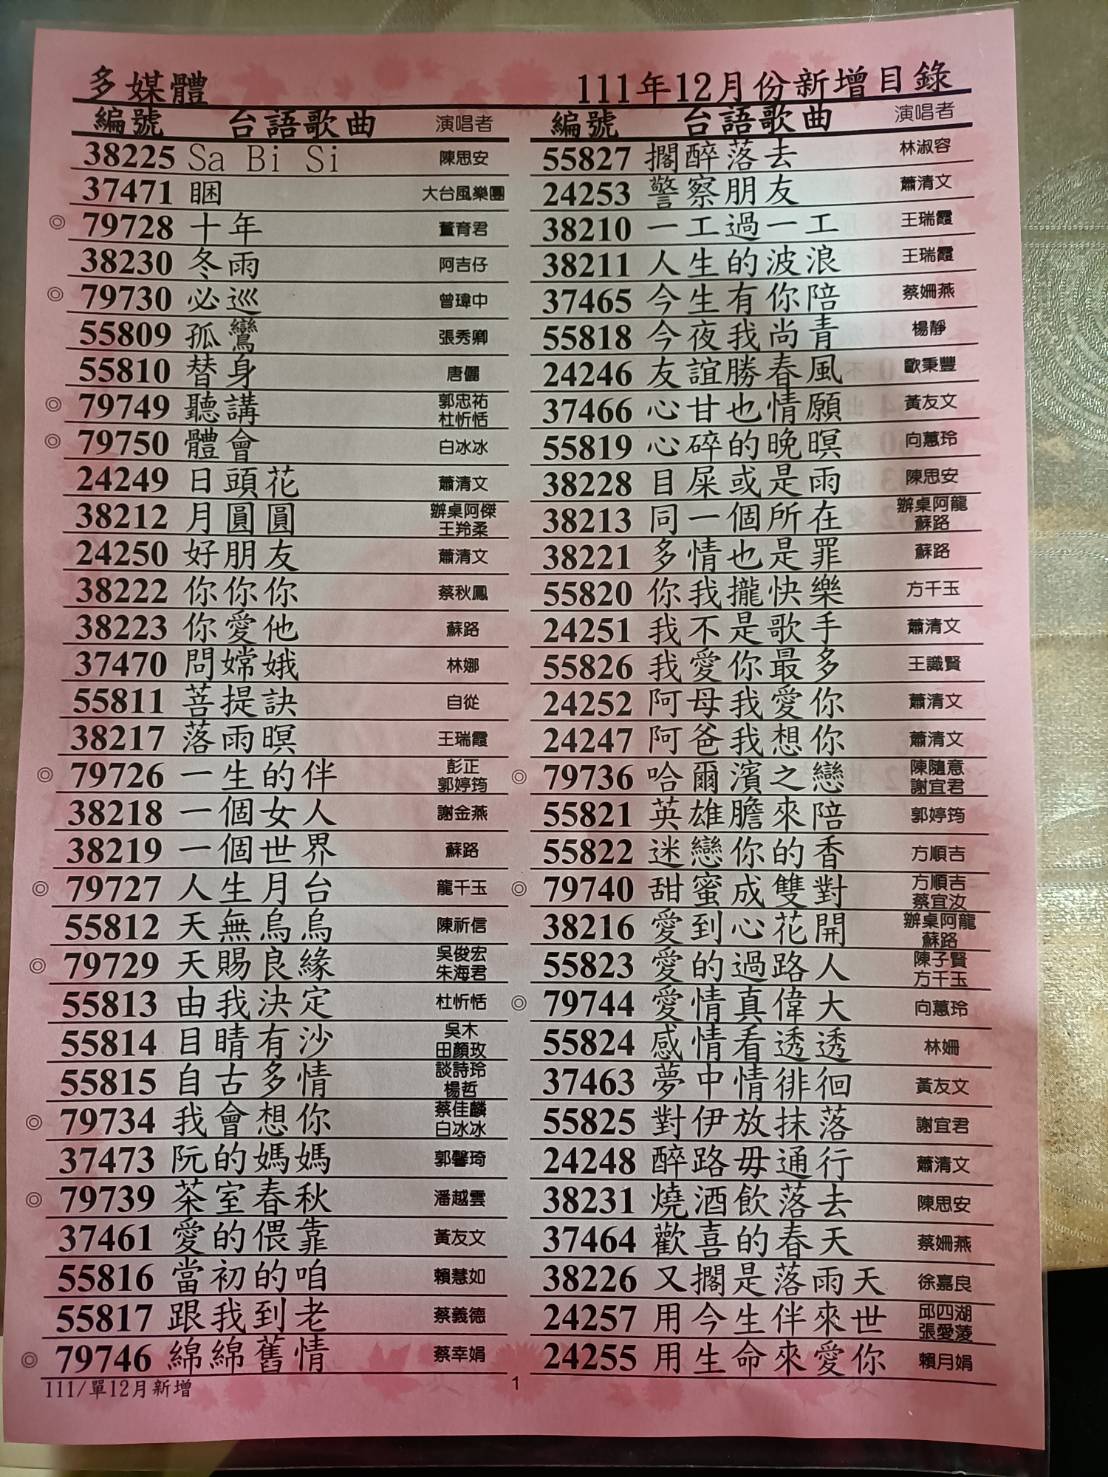 多媒體 111年12月份新增目錄
編號 台語歌曲 演唱者
38225 Sa Bi Si 陳思安
37471 睏 大台風樂團
◎ 79728 十年 董育君
38230 冬雨 阿吉仔
◎ 79730 必巡 曾瑋中
55809 孤鸞 張秀卿
55810 替身 唐儷
◎ 79749 聽講 郭忠祐 杜忻恬
◎ 79750 體會 白冰冰
24249 日頭花 蕭清文
38212 月圓圓 辦桌阿傑 王羚柔
24250 好朋友 蕭清文
38222 你你你 蔡秋鳳
38223 你愛他 蘇路
37470 問嫦娥 林娜
55811 菩提訣 自從
38217 落雨暝 王瑞霞
◎ 79726 一生的伴 彭正 郭婷筠
38218 一個女人 謝金燕
38219 一個世界 蘇路
◎ 79727 人生月台 龍千玉
55812 天無烏烏 陳祈信
◎ 79729 天賜良緣 吳俊宏 朱海君
55813 由我決定 杜忻恬
55814 目睛有沙 吳木 田顏玫
55815 自古多情 談詩玲 楊哲
◎ 79734 我會想你 蔡佳麟 白冰冰
37473 阮的媽媽 郭馨琦
◎ 79739 茶室春秋 潘越雲
37461 愛的偎靠 黃友文
55816 當初的咱 賴慧如
55817 跟我到老 蔡義德
◎ 79746 綿綿舊情 蔡幸娟
編號 台語歌曲 演唱者
55827 擱醉落去 林淑容
24253 警察朋友 蕭清文
38210 一工過一工 王瑞霞
38211 人生的波浪 王瑞霞
37465 今生有你陪 蔡姍燕
55818 今夜我尚青 楊靜
24246 友誼勝春風 歐秉豐
37466 心甘也情願 黃友文
55819 心碎的晚暝 向蕙玲
38228 目屎或是雨 陳思安
38213 同一個所在 辦桌阿龍 蘇路
38221 多情也是罪 蘇路
55820 你我攏快樂 方千玉
24251 我不是歌手 蕭清文
55826 我愛你最多 王識賢
24252 阿母我愛你 蕭清文
24247 阿爸我想你 蕭清文
◎ 79736 哈爾濱之戀 陳隨意 謝宜君
55821 英雄膽來陪 郭婷筠
55822 迷戀你的香 方順吉
◎ 79740 甜蜜成雙對 方順吉 蔡宜汝
38216 愛到心花開 辦桌阿龍 蘇路
55823 愛的過路人 陳子賢 方千玉
◎ 79744 愛情真偉大 向蕙玲
55824 感情看透透 林姍
37463 夢中情徘徊 黃友文
55825 對伊放抹落 謝宜君
24248 醉路毋通行 蕭清文
38231 燒酒飲落去 陳思安
37464 歡喜的春天 蔡姍燕
38226 又擱是落雨天 徐嘉良
24257 用今生伴來世 邱四湖 張愛薐
24255 用生命來愛你 賴月娟
111/單12月新增 1